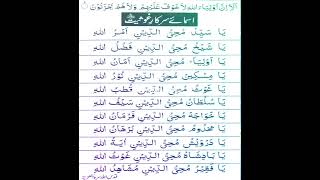 اَلَآ اِنَّ اَوْلِيَآءَ اللّٰهِ لَاخَوْفٌ عَلَيْهِمْ وَلَاهُمْ يَحْزَنُوْنَ
اسمائے سرکار غوثیت
يَا سَيِّدْ مُحِىُّ الدِّيْنِ اَمْرُ اللهِ
يَا شَيْخْ مُحِىُّ الدِّيْنِ فَضْلُ اللهِ
يَا اَوْلِيَآءْ مُحِىُّ الدِّيْنِ اَمَانُ اللهِ
يَا مِسْكِيْنْ مُحِىُّ الدِّيْنِ نُوْرُ اللهِ
يَا غَوْثْ مُحِىُّ الدِّيْنِ قُطْبُ اللهِ
يَا سُلْطَانْ مُحِىُّ الدِّيْنِ سَيْفُ اللهِ
يَا خَوَاجَهْ مُحِىُّ الدِّيْنِ فَرْمَانُ اللهِ
يَا مَخْدُوْمْ مُحِىُّ الدِّيْنِ بُرْهَانُ اللهِ
يَا دَرْوِيْشْ مُحِىُّ الدِّيْنِ اٰيَةُ اللهِ
يَا بَادْشَاهْ مُحِىُّ الدِّيْنِ غَوْثُ اللهِ
يَا فَقِيْرْ مُحِىُّ الدِّيْنِ مُشَاهِدُ اللهِ